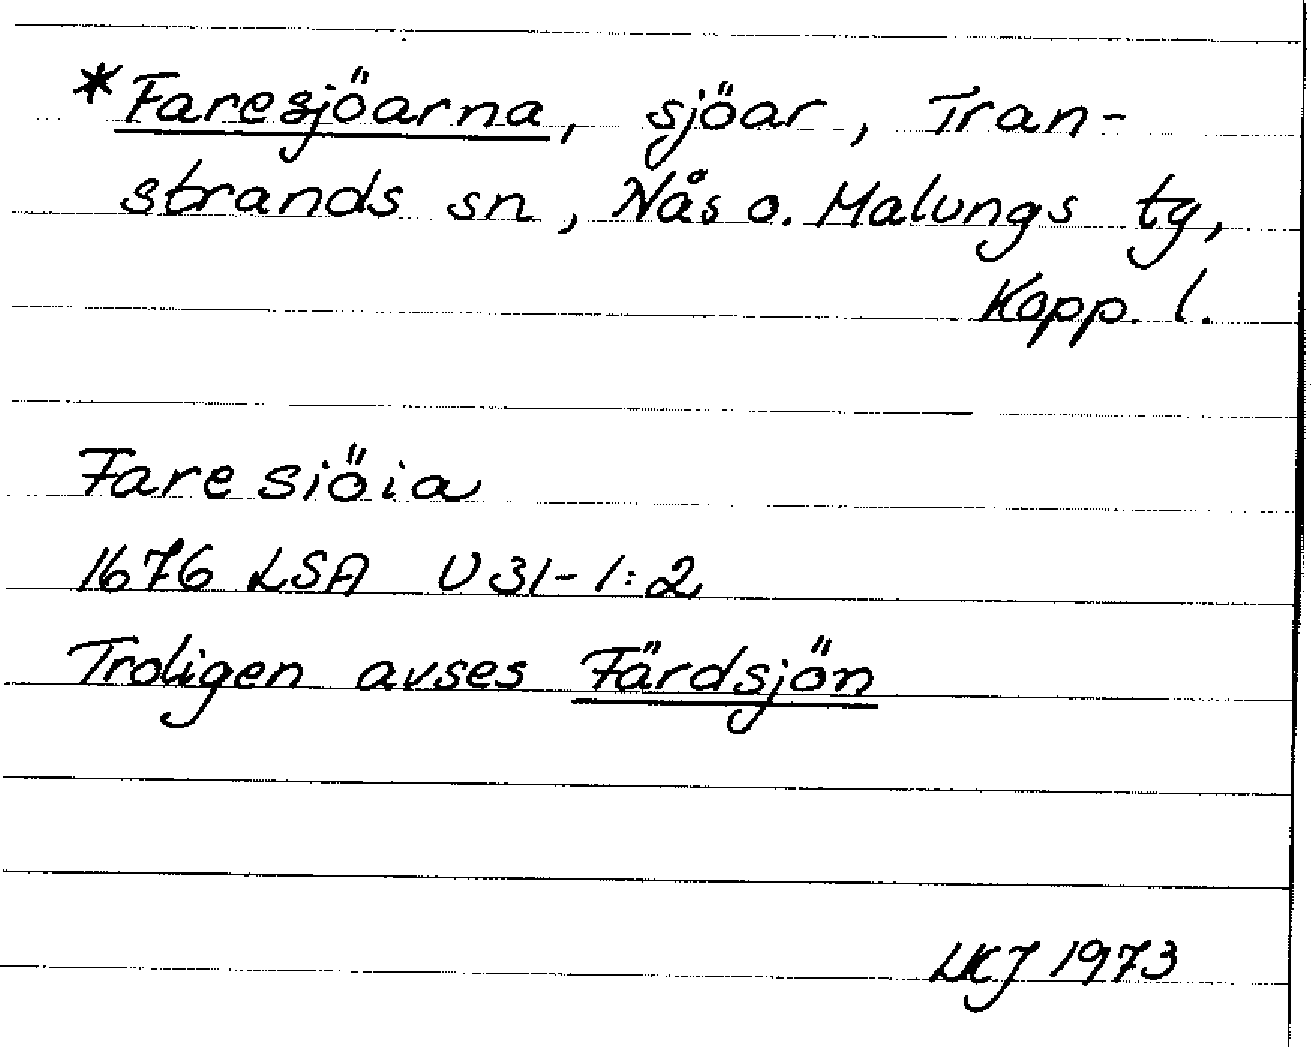 *Faresjöarna, sjöar, Tran-
strands sn, Nås o. Malungs tg,
Kopp. l.
Faresiöia
1676 LSA U31-1:2
Troligen avses Färdsjön
LKJ 1973